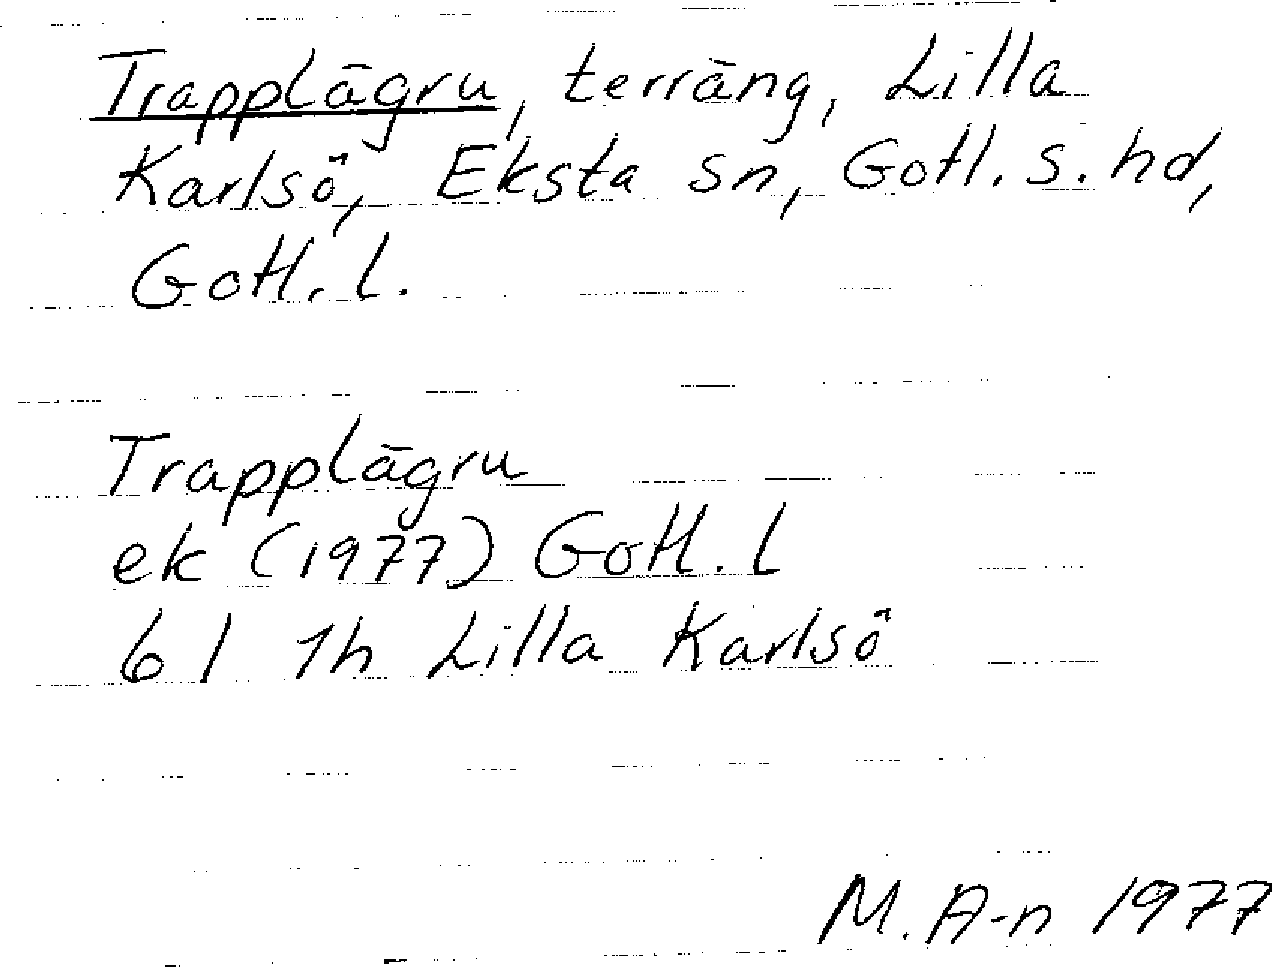 Trapplägru, terräng, Lilla
Karlsö, Eksta sn, Gotl. s. hd,
Gotl. l.
Trapplägru
ek (1977) Gotl. l
6 I 1h Lilla Karlsö
M. A-n 1977